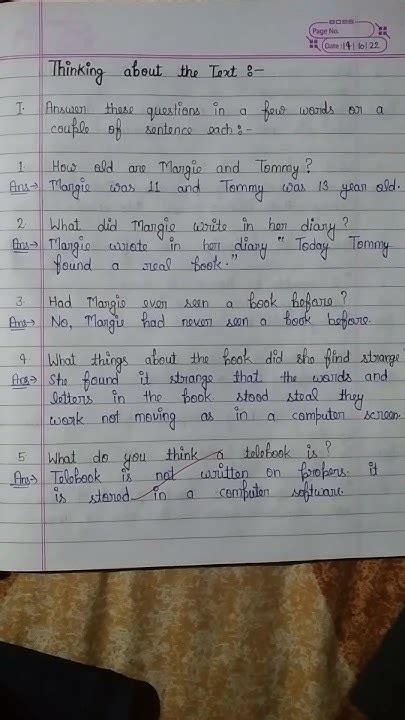 Page No.
Date: 19/10/22
Thinking about the Text :-
I. Answer these questions in a few words or a
couple of sentence each :-
1. How old are Margie and Tommy ?
Ans→ Margie was 11 and Tommy was 13 year old.
2. What did Margie write in her diary ?
Ans→ Margie wrote in her diary " Today Tommy
found a real book."
3. Had Margie ever seen a book before ?
Ans→ No, Margie had never seen a book before.
4. What things about the book did she find strange
Ans→ She found it strange that the words and
letters in the book stood steal they
work not moving as in a computer screen.
5. What do you think a telebook is ?
Ans→ Telebook is not written on propers. it
is stored in a computer software.